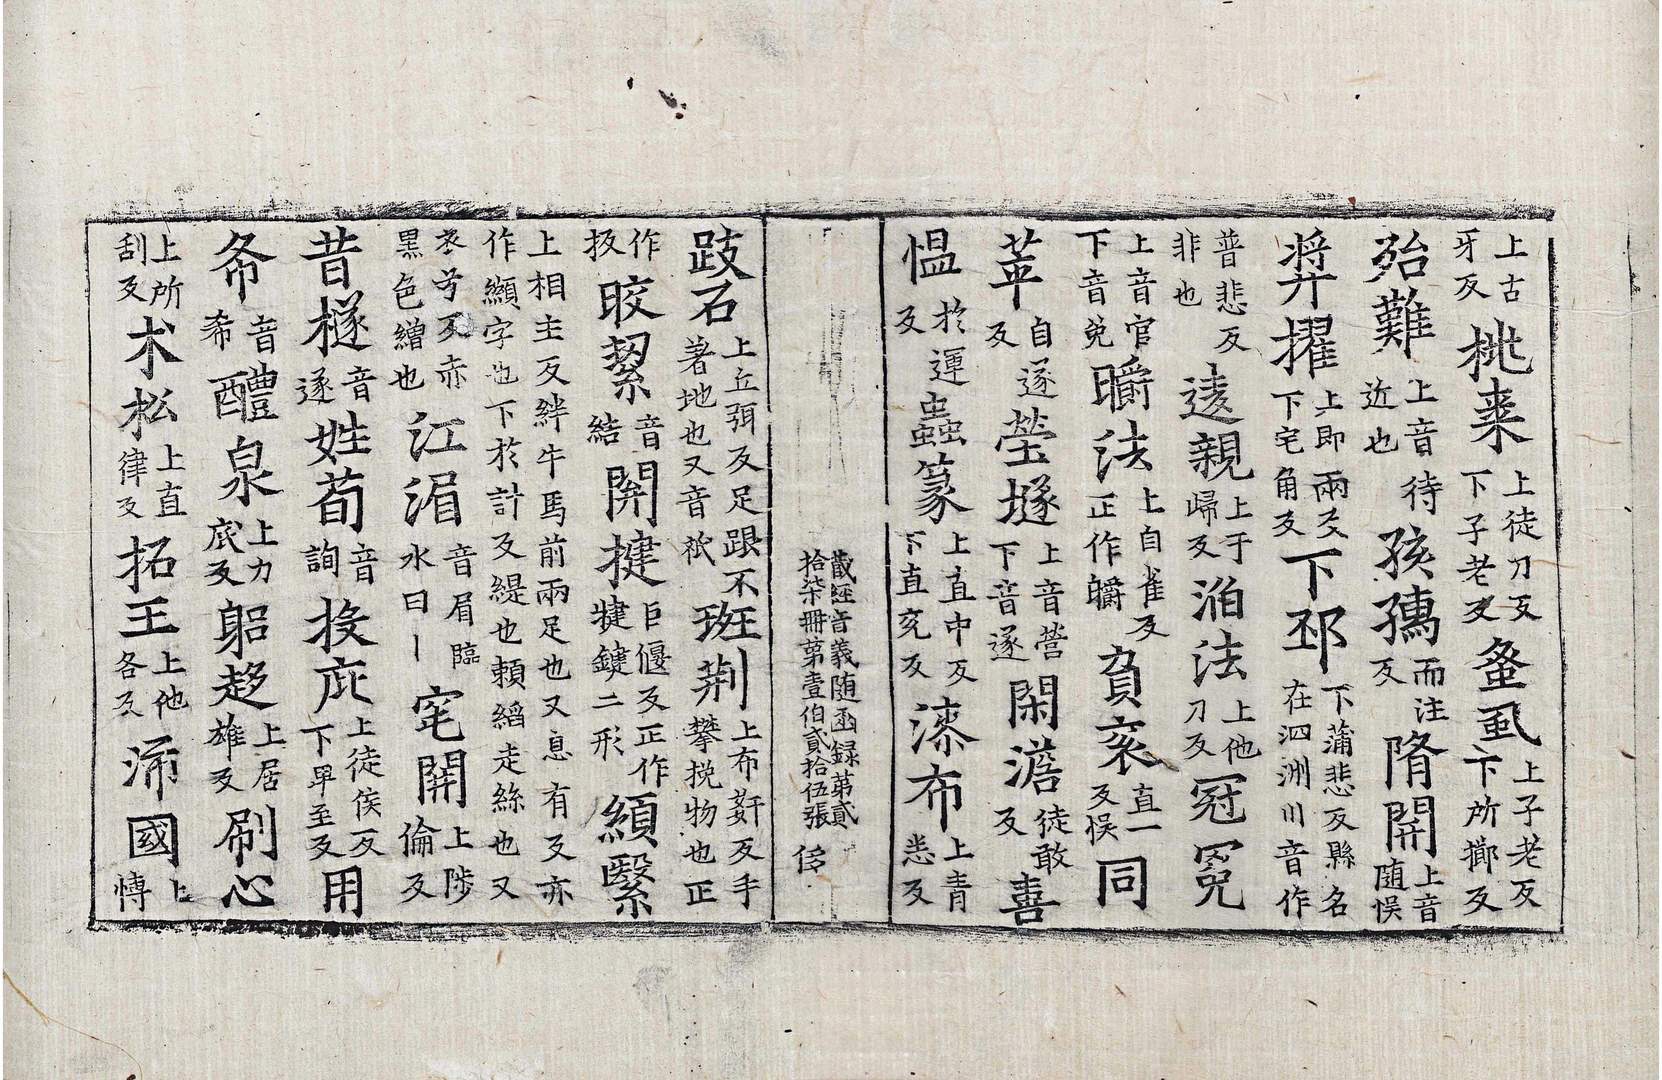 上古牙反桃来上徒刀反下子老反蚤虱上子老反下所擳反
殆難上音待近也孩孺而注反隋開上音随悮
弉擢上即兩反下宅角反下邳下蒲悲反縣名在泗洲川音作
普悲反非也逺親上于歸反滔法上他刀反冠冕
上音官下音免㬭法上自雀反正作皭負衮直一反悮同
萃自遂反塋墜上音營下音遂閑澹徒敢反喜
愠於運反蟲篆上直中反下直兖反漆布上青悉反
藏經音義随函録第貳拾柒冊第壹伯貳拾伍張
跂石上丘弭反足跟不著地也又音祇班荆上布姧反手攀挽物也正
作扳晈絜音結開揵巨偃反正作犍鍵二形纈繄
上相主反絆牛馬前兩足也又息有反亦作纈字也下於計反緹也頼縚走絲也又
衣兮反赤黒色繒也江湄音眉臨水曰丨窀開上陟倫反
昔檖音遂姓荀音詢投庇上徒侯反下卑至反用
希音希醴泉上力底反躳趍上居雄反刷心
上所刮反术松上直律反拓王上他各反沛國上愽